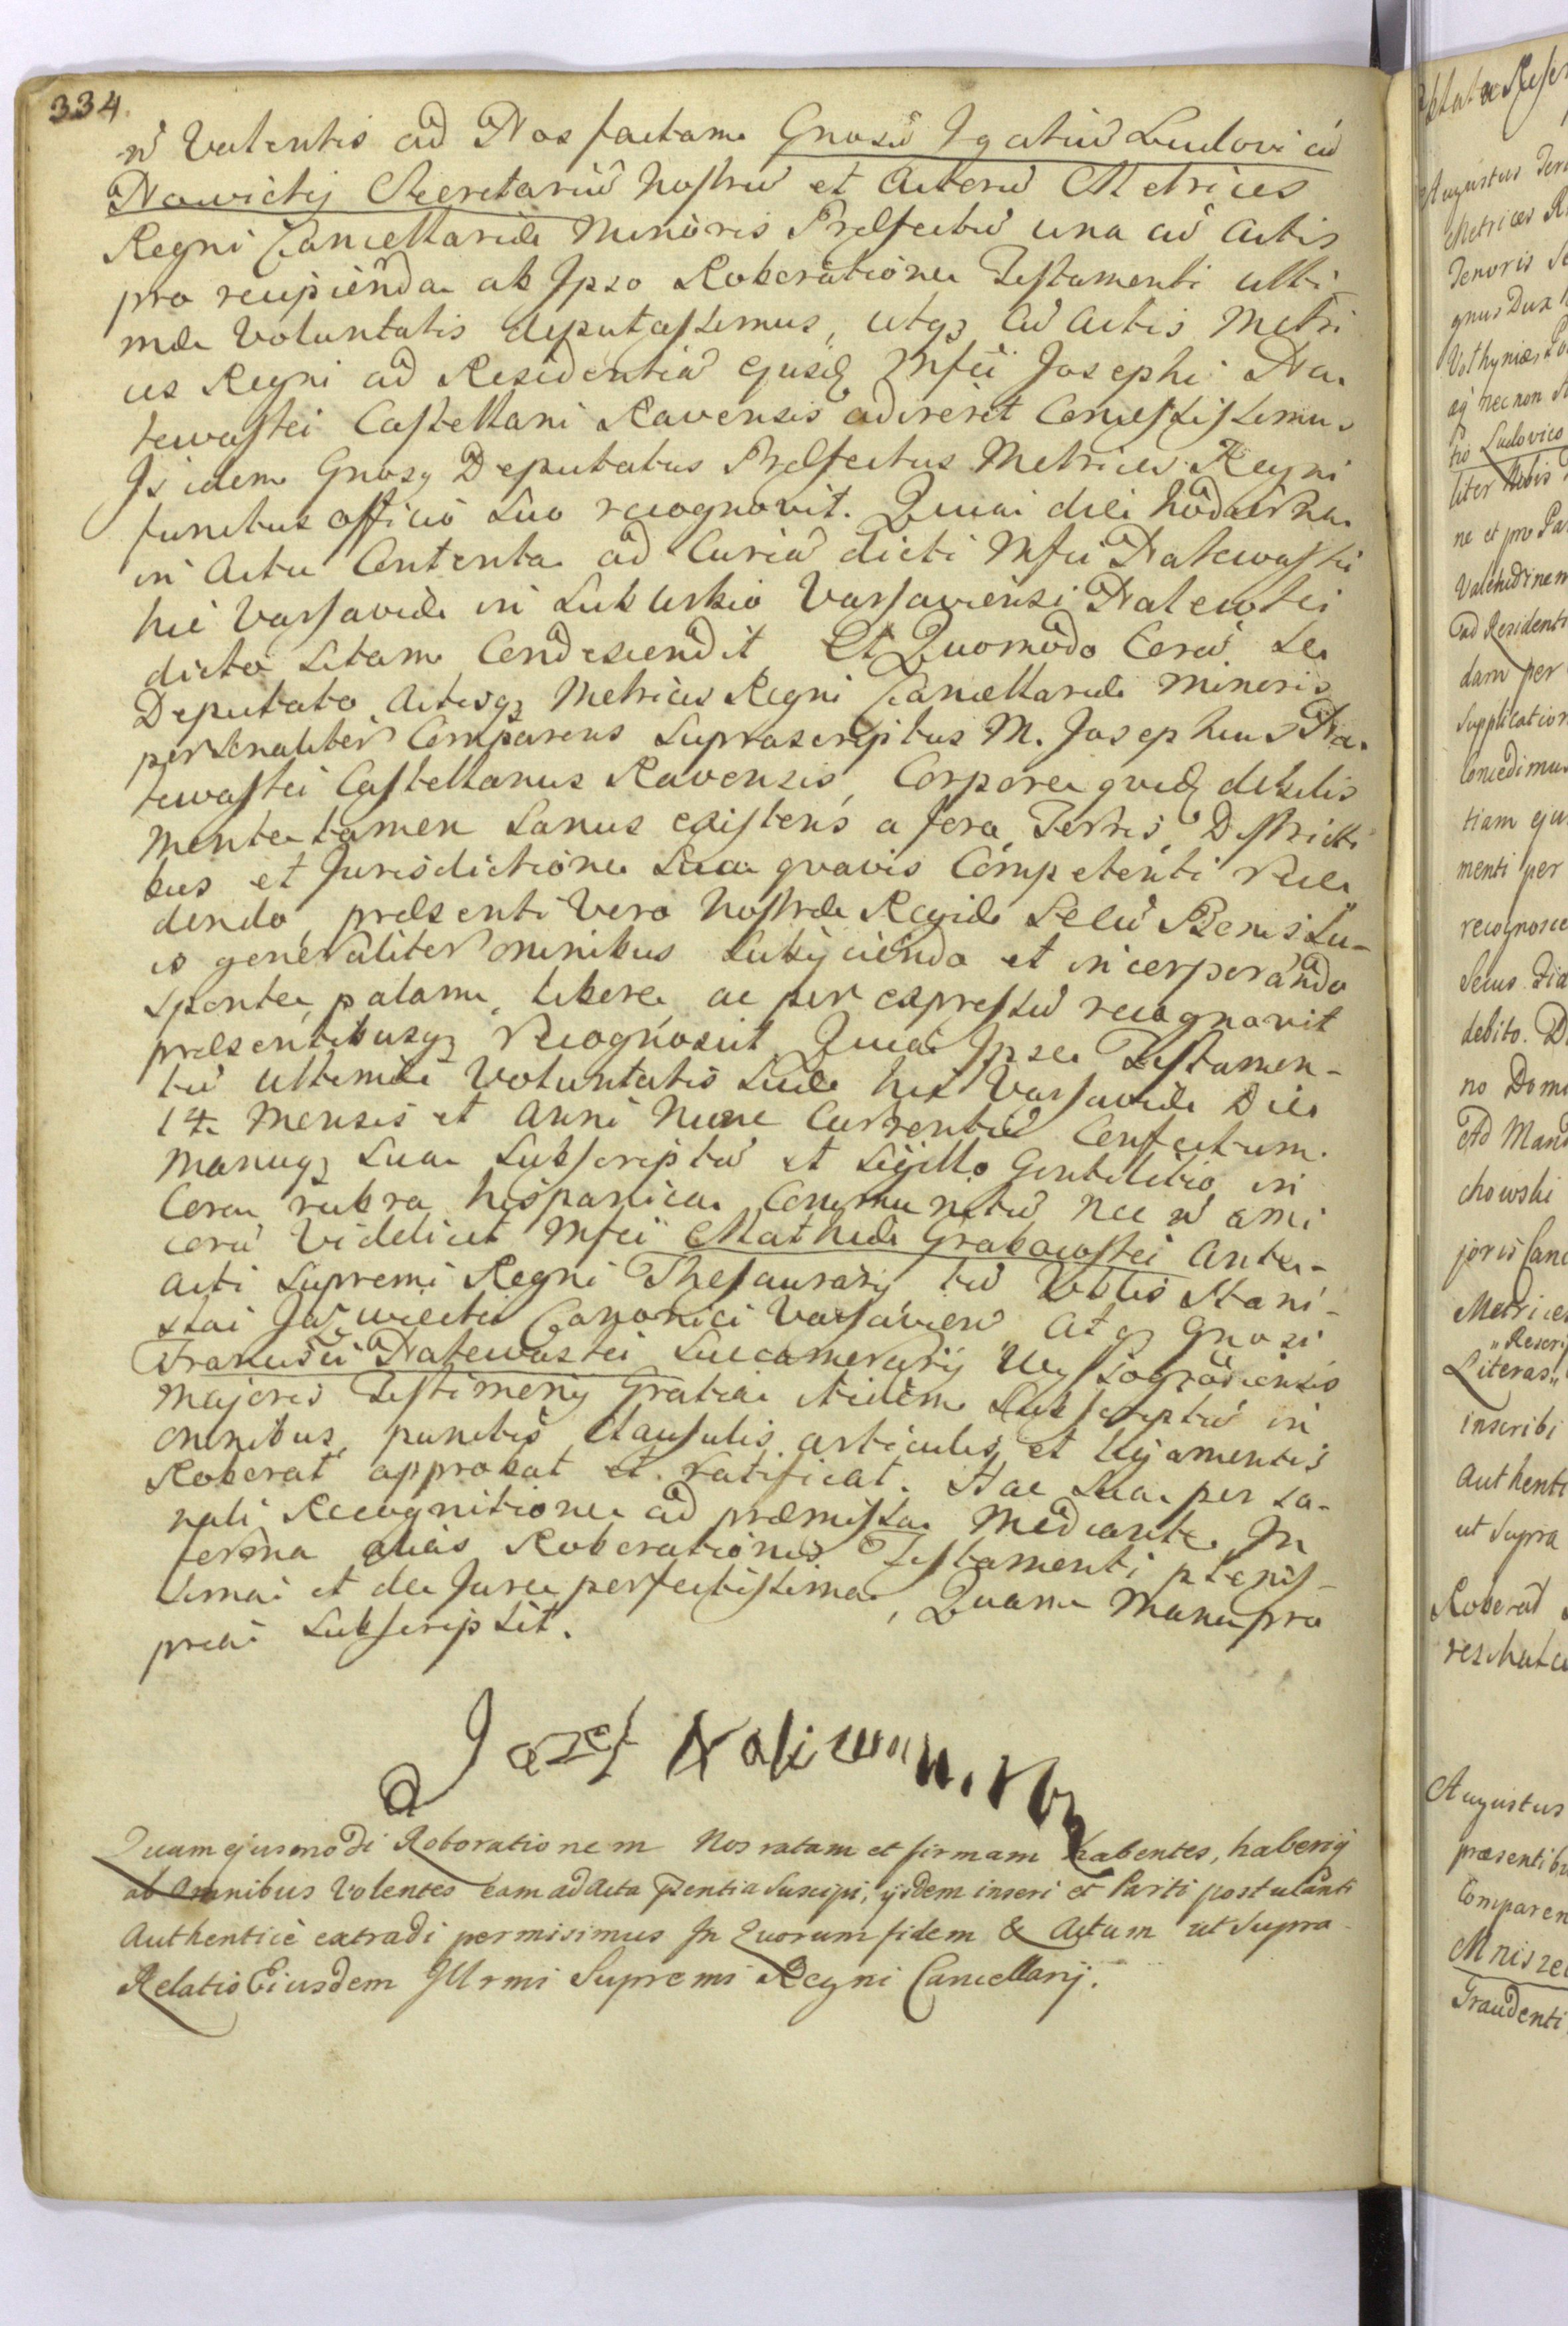 334.
n̄ Valentis ad Nos factam Gnosū Igatiū Ludovicū
Nowicky Secretariū Nostrū et Actorū Metrices
Regni Cancellariæ Minoris Præfectū una cū Actis
pro recipienda ab Ipso Roboratione Testamenti ulti-
mæ Voluntatis deputassemus, utqȝ cū Actis Metri
ces Regni ad Residentiā ejusdȩ Mfci Josephi Na-
kwaski Castellani Ravensis adireret Concessissemus
Is idem Gnosȝ Deputatus Præfectus Metrices Regni
functus officio Suo recognovit. Quia die hodierna
in Actu Contenta ad Curiā dicti Mfci Nakwaski
hic Varsaviæ in Suburbio Varsaviensi Nalewki
dicto Sitam Condescendit. Et Quomodo Corā Se
Deputato Actisqȝ Metrices Regni Cancellariæ Minoris
personaliter Comparens Suprascriptus M. Josephus Na-
kwaski Castellanus Ravensis, Corpore quidȩ debilis
Mente tamen Sanus existens a foro, Terris, Districti
bus et Jurisdictione Sua quavis Competenti rece
dendo, præsenti vero Nostræ Regiæ Se cū Bonis Su-
is generaliter omnibus Subijciendo et incorporando
Sponte, palam, libere, ac per expressū recognovit
præsentibusqȝ Recognoscit. Quia Ipse Testamen-
tū ultimæ Voluntatis Suæ hic Varsaviæ Die
14 Mensis et Anni Nunc Currentiū Confectum.
Manuqȝ Sua Subscriptū et Sigillo Gentilitio in
Cera rubra hispanica Communitū Nec n̄ ami
corū Videlicet Mfci Mathiæ Grabowski Ante-
acti Supremi Regni Thesaurarij tū Vblis Stani-
slai Canonici Varsavien̄ Atqȝ Gnosi
Francisci Nakwaski Succamerarij Wyssogrodiensis
Majoris Testimonij Gratia itidem Subscriptū in
omnibus punctis Clausulis, articulis, et ligamentis
Roborat approbat et ratificat. Hac Sua perso-
nali Recognitione ad præmissa Mediante. In
forma alias Roborationis Testamenti plenis-
sima et de Jure perfectissima, Quam Manu pro
pria Subscripsit.
Jozef Nakwaski
Quam ejusmodi Roborationem Nos ratam et firmam habentes, haberiq̄
ab omnibus Volentes eam ad Acta p̄sentia Suscipi, ijsdem inseri et Parti postulanti
Authenticè extradi permisimus In Quorum fidem & Actum ut Supra
Relatio Eiusdem Illrmi Supremi Regni Cancellarij.
Augustus
Metrices
Tenoris
gnus Dux
Volhyniæ
nec non
Ludovico
liter Nobis
ne et pro
ad Residenti
dam per
Supplication
Concedimus
tiam eju
menti per
recognosce
Secus
debito.
no Domi
Ad Mand
chowski
joris Canc
Metrices
Literas
inscribi
Authenti
ut Supra
Roborat
Augustus
præsentibu
Comparen
Mnisze
Graudenti